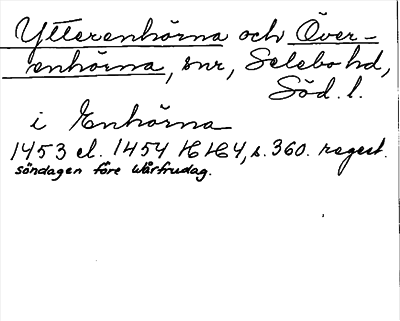 Ytterenhörna och Över-
enhörna, snr, Selebo hd,
Söd. l.
i Enhörna
1453 el. 1454 HH4, s. 360. regest.
söndagen före Wårfrudag.